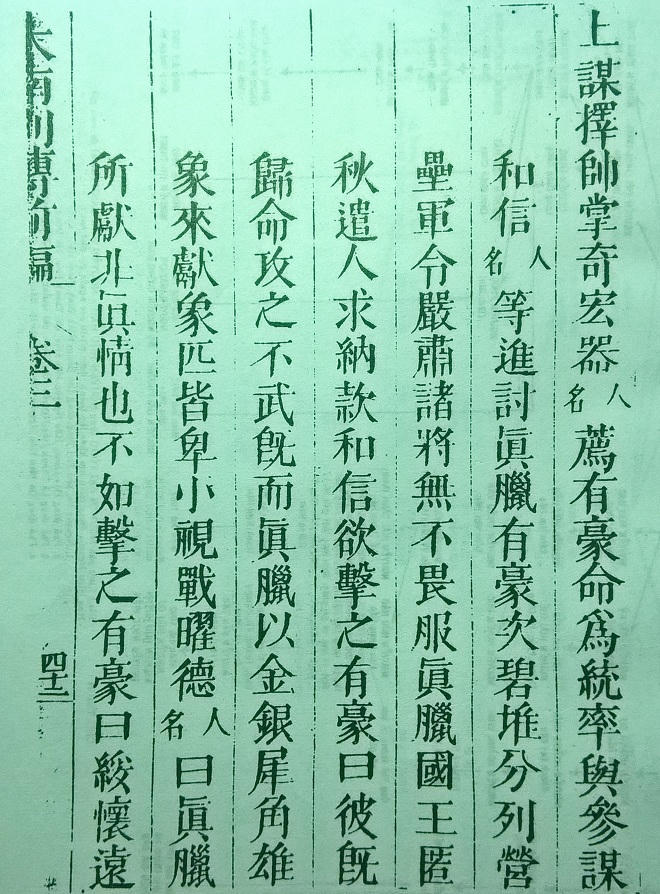 上謀擇帥掌奇宏器人名薦有豪命爲統率與參謀
和信人名等進討眞臘有豪次碧堆分列營
壘軍令嚴肅諸將無不畏服眞臘國王匿
秋遣人求納款和信欲擊之有豪曰彼旣
歸命攻之不武旣而眞臘以金銀犀角雄
象來獻象匹皆卑小視戰曜德人名曰眞臘
所獻非眞情也不如擊之有豪曰綏懷遠
大南列傳前編 卷三 四十二